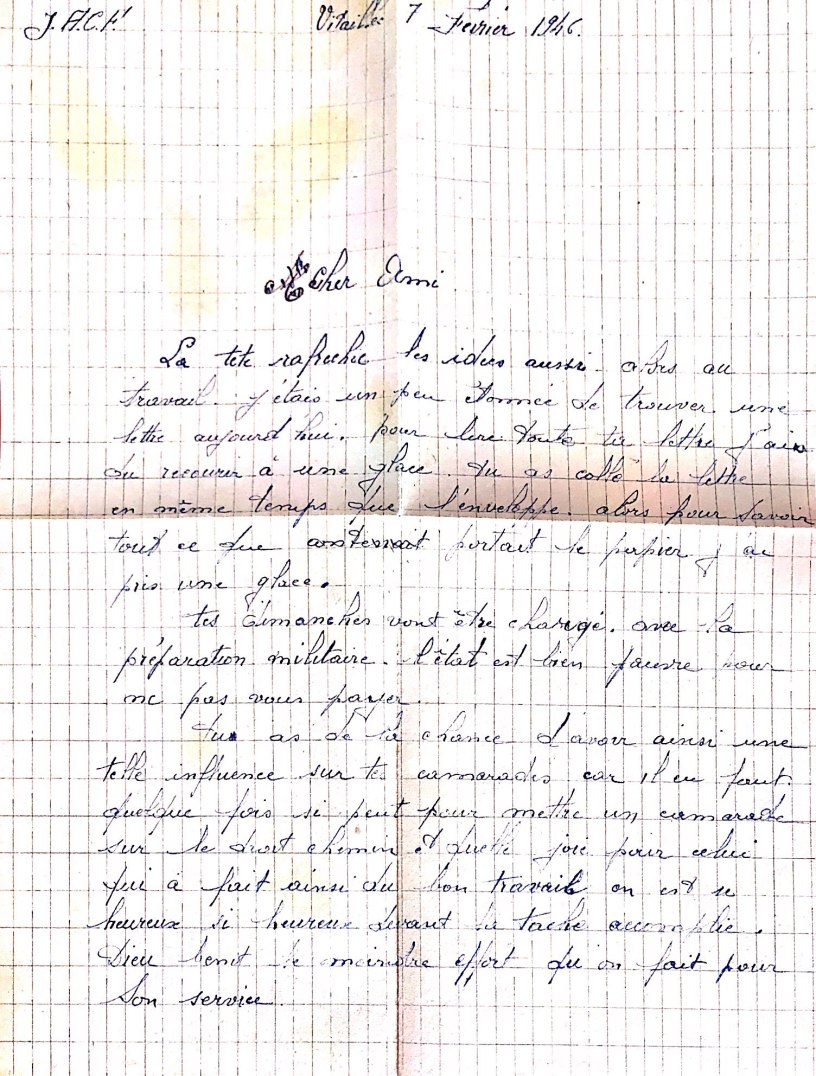 J.A.C.F. Vitaille 7 Février 1946.
Cher Ami
La tete rafrechie les idées aussi alors au
travail. j'étais un peu étonnée de trouver une
lettre aujourd'hui. pour lire toute ta lettre j'ai
du recourir à une glace. tu as collé la lettre
en même temps que l'enveloppe. alors pour savoir
tout ce que portait le papier j'ai
pris une glace.
tes dimanches vont être chargé. avec la
préparation militaire. l'état est bien pauvre pour
ne pas vous payer.
tu as de la chance d'avoir ainsi une
telle influence sur tes camarades car il en faut
quelque fois si peut pour mettre un camarade
sur le droit chemin et quelle joie pour celui
qui a fait ainsi du bon travail on est si
heureux si heureux devant la tache accomplie.
Dieu benit le moindre effort qu'on fait pour
Son service.